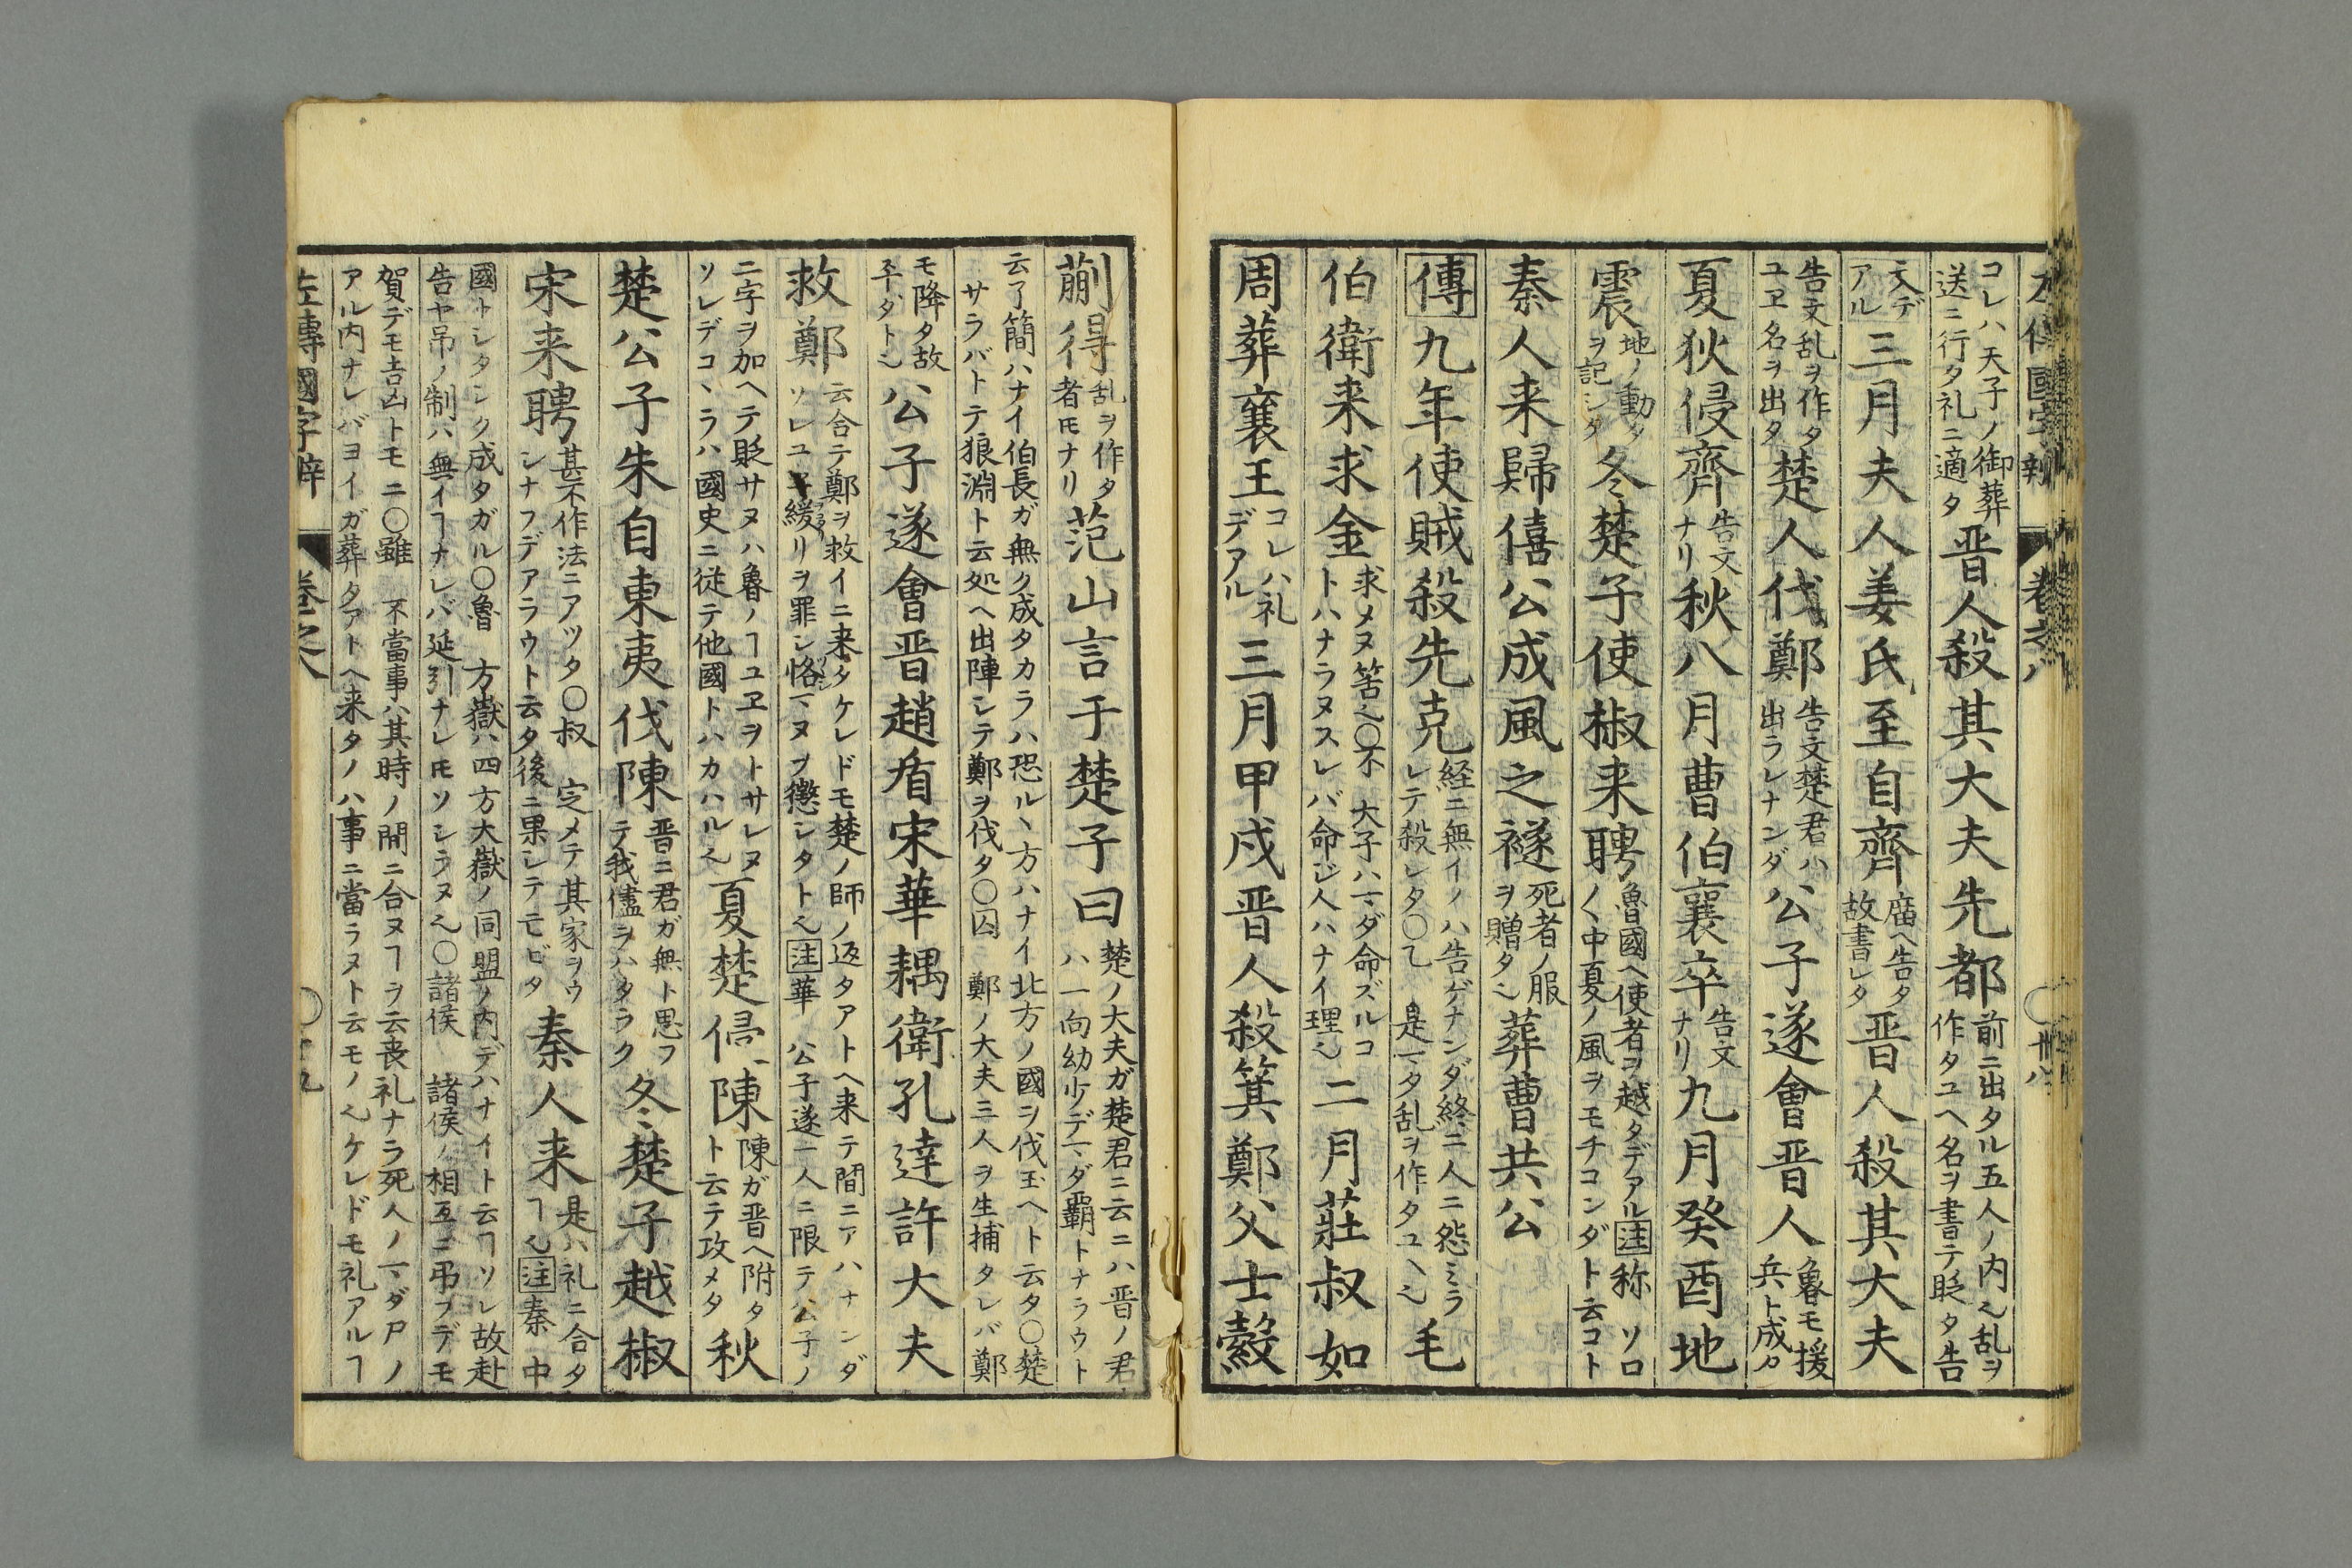 左傳國字辨 卷之八
コレハ天子ノ御葬送ニ行タ礼ニ適タ 晋人殺其大夫先都 前ニ出タル五人ノ内也乱ヲ作タユヘ名ヲ書テ貶タ告
文デアル 三月夫人姜氏至自齊 廟ヘ告タ故書レタ 晋人殺其大夫
告文乱ヲ作タユヱ名ヲ出タ 楚人伐鄭 告文楚君ハ出ラレナンダ 公子遂會晋人 魯モ援兵ト成タ
夏狄侵齊 告文ナリ 秋八月曹伯襄卒 告文ナリ 九月癸酉地
震 地ノ動タヲ記シタ 冬楚子使椒来聘 魯國ヘ使者ヲ越タデアル 注 称 ソロノ\中夏ノ風ヲモチコンダト云コト
秦人来歸僖公成風之襚 死者ノ服ヲ贈タ也 葬曹共公
傳 九年使賊殺先克 経ニ無イノハ告ゲナンダ終ニ人ニ怨ミラレテ殺レタ○乙 是マタ乱ヲ作タユヘ也 毛
伯衛来求金 求メヌ筈也○不 大子ハマダ命ズルコトハナラヌスレバ命ジ人ハナイ理也 二月莊叔如
周葬襄王 コレハ礼デアル 三月甲戌晋人殺箕鄭父士縠
蒯得 乱ヲ作タ者ﾄﾓナリ 范山言于楚子曰 楚ノ大夫ガ楚君ニ云ニハ晋ノ君ハ一向幼少デマダ覇トナラウト
云了簡ハナイ伯長ガ無ク成タカラハ恐ルヽ方ハナイ北方ノ國ヲ伐玉ヘト云タ○楚 サラバトテ狼淵ト云処ヘ出陣シテ鄭ヲ伐タ○囚 鄭ノ大夫三人ヲ生捕タレバ鄭
モ降タ故平ダト也 公子遂會晋趙盾宋華耦衛孔達許大夫
救鄭 云合テ鄭ヲ救イニ来タケレドモ楚ノ師ノ返タアトヘ来テ間ニアハナンダソレユヱ緩リヲ罪シ恪マヌヲ懲シタト也 注 華 公子遂一人ニ限テ公子ノ
二字ヲ加ヘテ貶サヌハ魯ノヿユヱヲトサレヌソレデコヽラハ國史ニ従テ他國トハカハル也 夏楚侵陳 陳ガ晋ヘ附タト云テ攻メタ 秋
楚公子朱自東夷伐陳 晋ニ君ガ無ト思フテ我儘ヲハタラク 冬楚子越椒
宋来聘 甚不作法ニアツタ○叔 定メテ其家ヲウシナフデアラウト云タ後ニ果シテ亡ビタ 秦人来 是ハ礼ニ合タヿ也 注 秦 中
國トシタシク成タガル○魯 方嶽ハ四方大嶽ノ同盟ノ内デハナイト云ヿソレ故赴告ヤ吊ノ制ハ無イヿナレバ延引ナレﾄﾓソシラヌ也○諸侯 諸侯ノ相互ニ弔フデモ
賀デモ吉凶トモニ○雖 不當事ハ其時ノ間ニ合ヌヿヲ云喪礼ナラ死人ノマダ尸ノアル内ナレバヨイガ葬タアトヘ来タノハ事ニ當ラヌト云モノ也ケレドモ礼アルヿ
左傳國字辨 卷之八